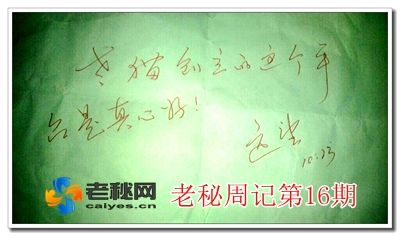 老猫创立的这个平
台是真心好！
10.23
老秘网
caiyes.cn
老秘周记第16期